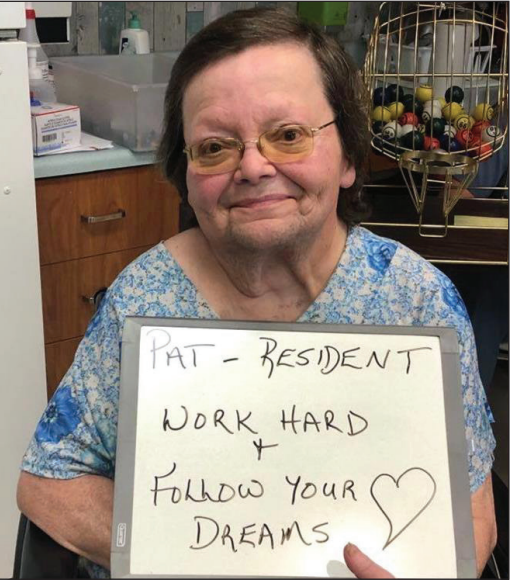 PAT - RESIDENT
WORK HARD
+
FOLLOW YOUR
DREAMS